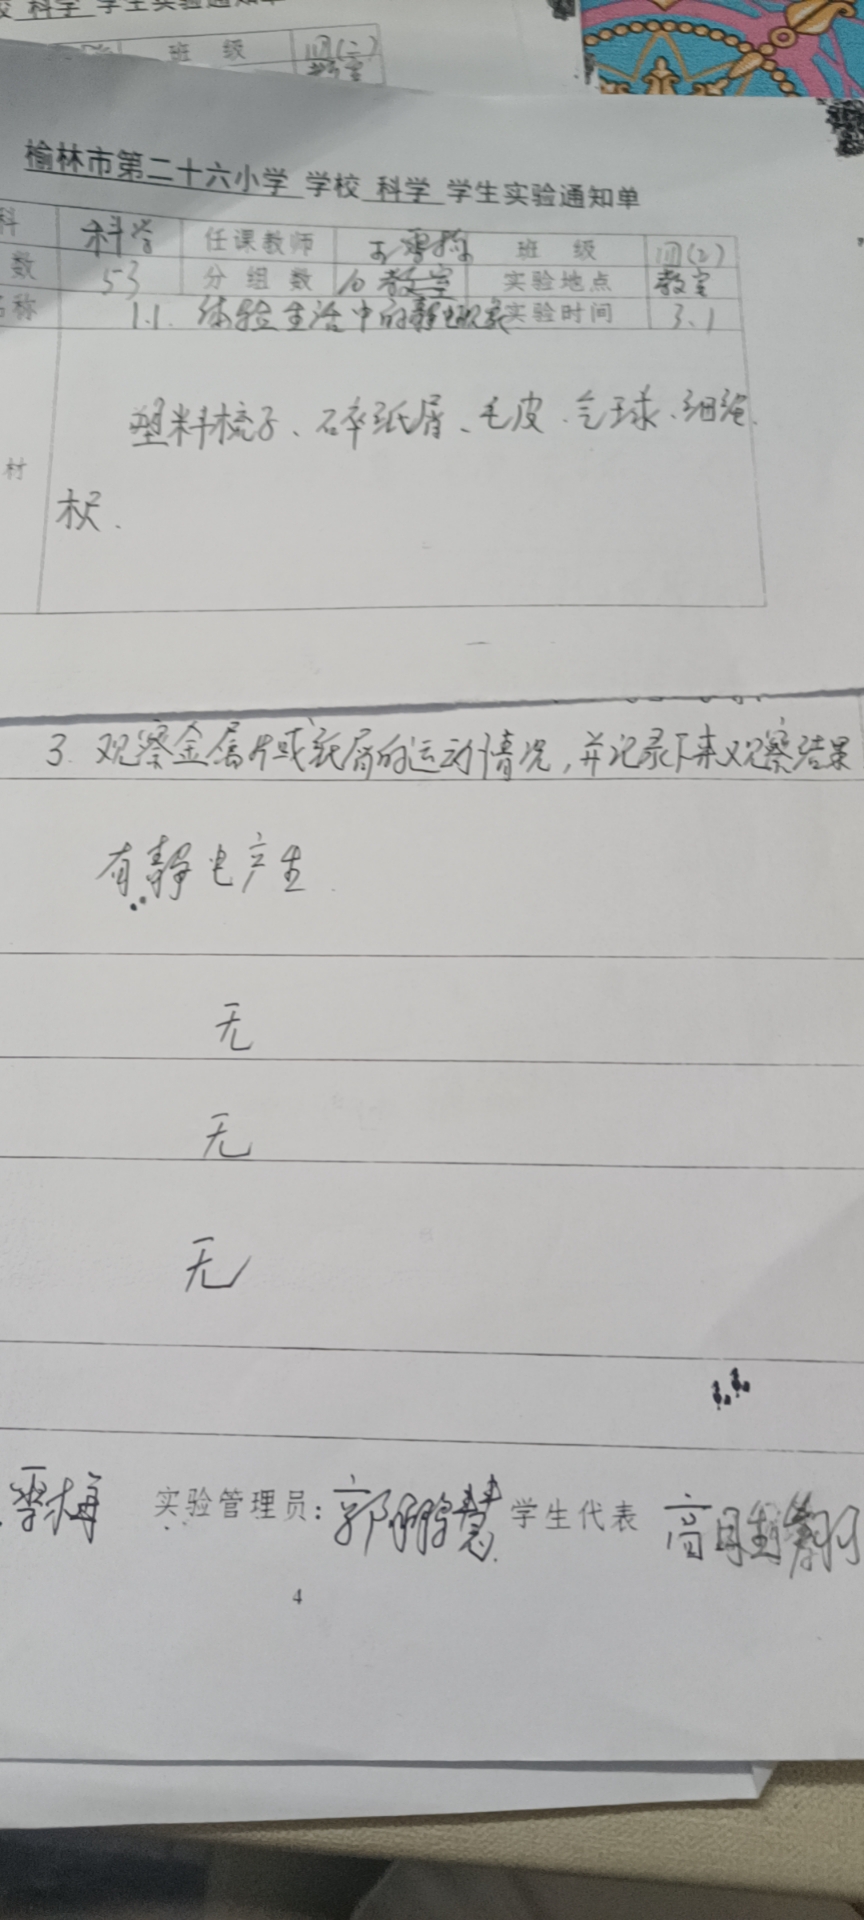 科学 学生实验通知单
班 级 四(二)
教室
榆林市第二十六小学 学校 科学 学生实验通知单
科 科学 任课教师 班 级 四(2)
数 53 分 组 数 10 教室 实验地点 教室
名称 1.1. 体验生活中的静电现象 实验时间 3.1
材 塑料梳子、碎纸屑、毛皮、气球、细绳、
尺.
3. 观察金属片或纸屑的运动情况,并记录下来观察结果
有静电产生
无
无
无
雪梅 实验管理员: 郭鹏慧 学生代表 高
4